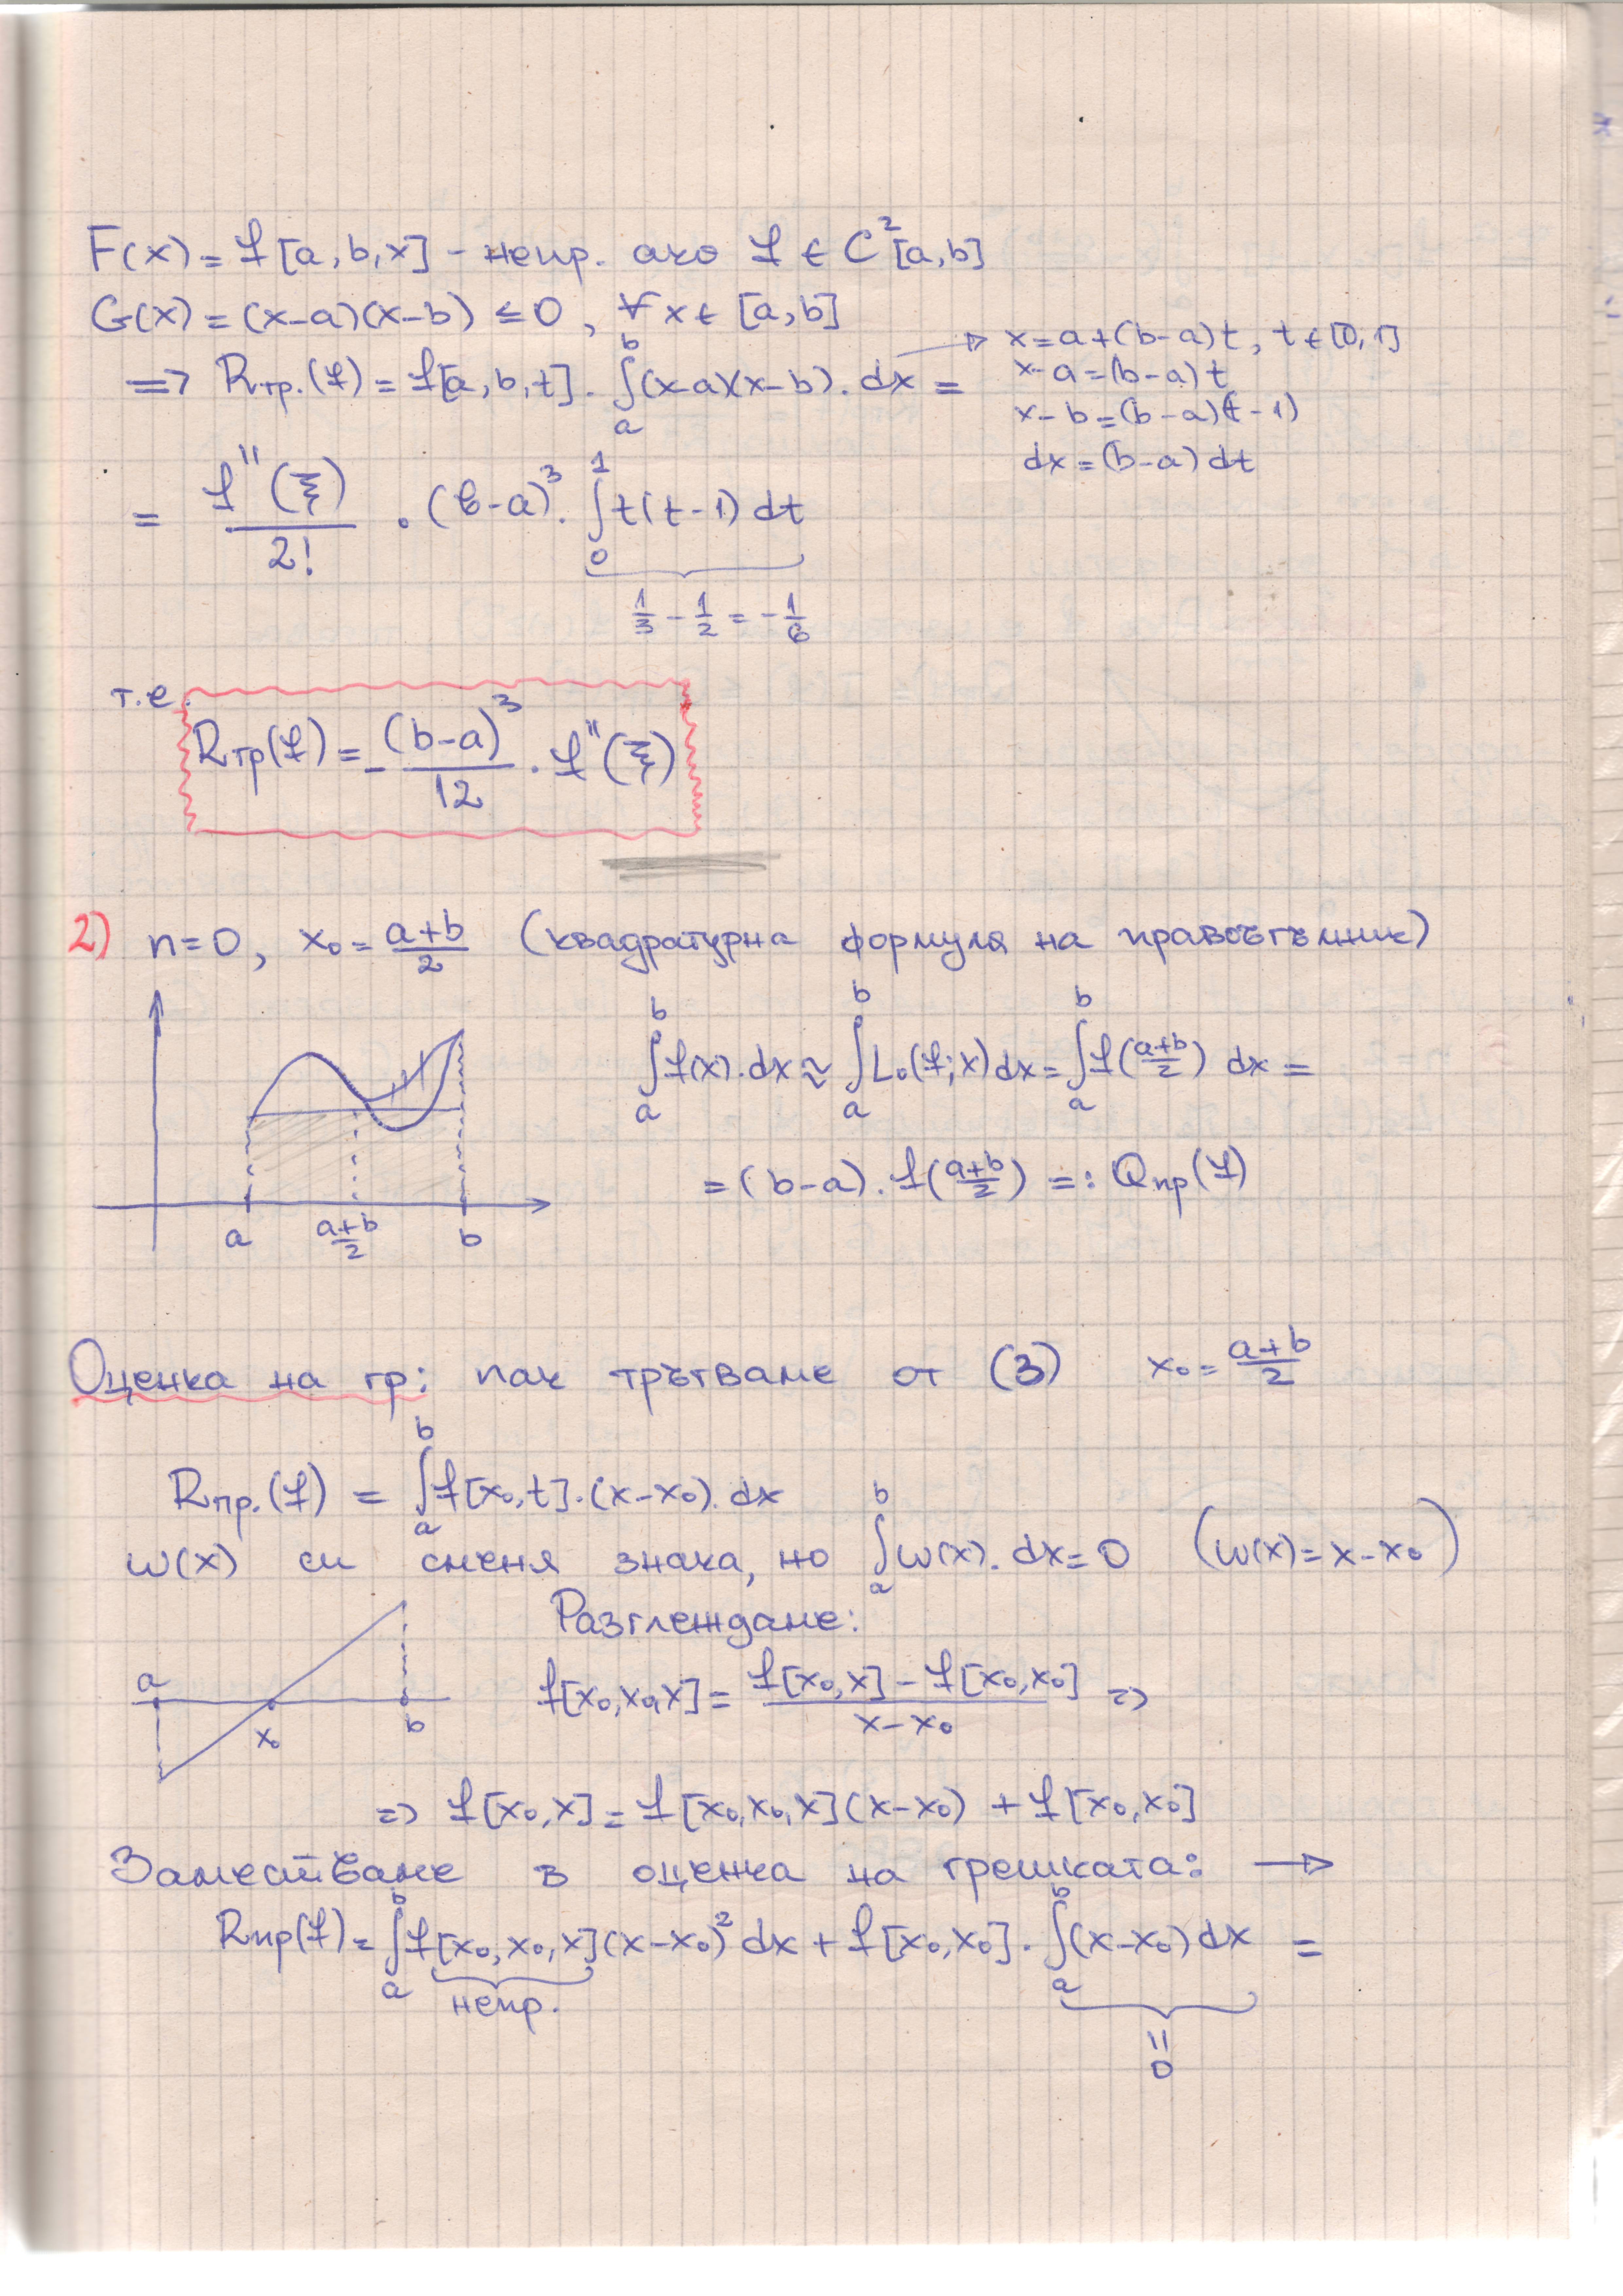 F(x) = f[a,b,x] - непр. ако f ∈ C²[a,b]
G(x) = (x-a)(x-b) ≤ 0, ∀x ∈ [a,b]
=> Rтр.(f) = f[a,b,t]. ∫_a^b (x-a)(x-b). dx =
x = a+(b-a)t, t ∈ [0,1]
x-a = (b-a)t
x-b = (b-a)(t-1)
dx = (b-a)dt
= f''(ξ)/2! . (b-a)³. ∫_0^1 t(t-1)dt
1/3 - 1/2 = -1/6
т.е.
Rтр(f) = -(b-a)³/12 . f''(ξ)
2) n=0, x₀ = (a+b)/2 (квадратурна формула на правоъгълник)
∫_a^b f(x).dx ≈ ∫_a^b L₀(f;x)dx = ∫_a^b f((a+b)/2) dx =
= (b-a). f((a+b)/2) =: Qпр(f)
a (a+b)/2 b
Оценка на гр: пак тръгваме от (3) x₀ = (a+b)/2
Rпр.(f) = ∫_a^b f[x₀,t].(x-x₀). dx
ω(x) си сменя знака, но ∫_a^b ω(x). dx = 0 (ω(x) = x-x₀)
Разглеждаме:
a x₀ b
f[x₀,x₀,x] = (f[x₀,x] - f[x₀,x₀])/(x-x₀) =>
=> f[x₀,x] = f[x₀,x₀,x](x-x₀) + f[x₀,x₀]
Заместваме в оценка на грешката: →
Rпр(f) = ∫_a^b f[x₀,x₀,x](x-x₀)² dx + f[x₀,x₀]. ∫_a^b (x-x₀)dx =
непр.
= 0